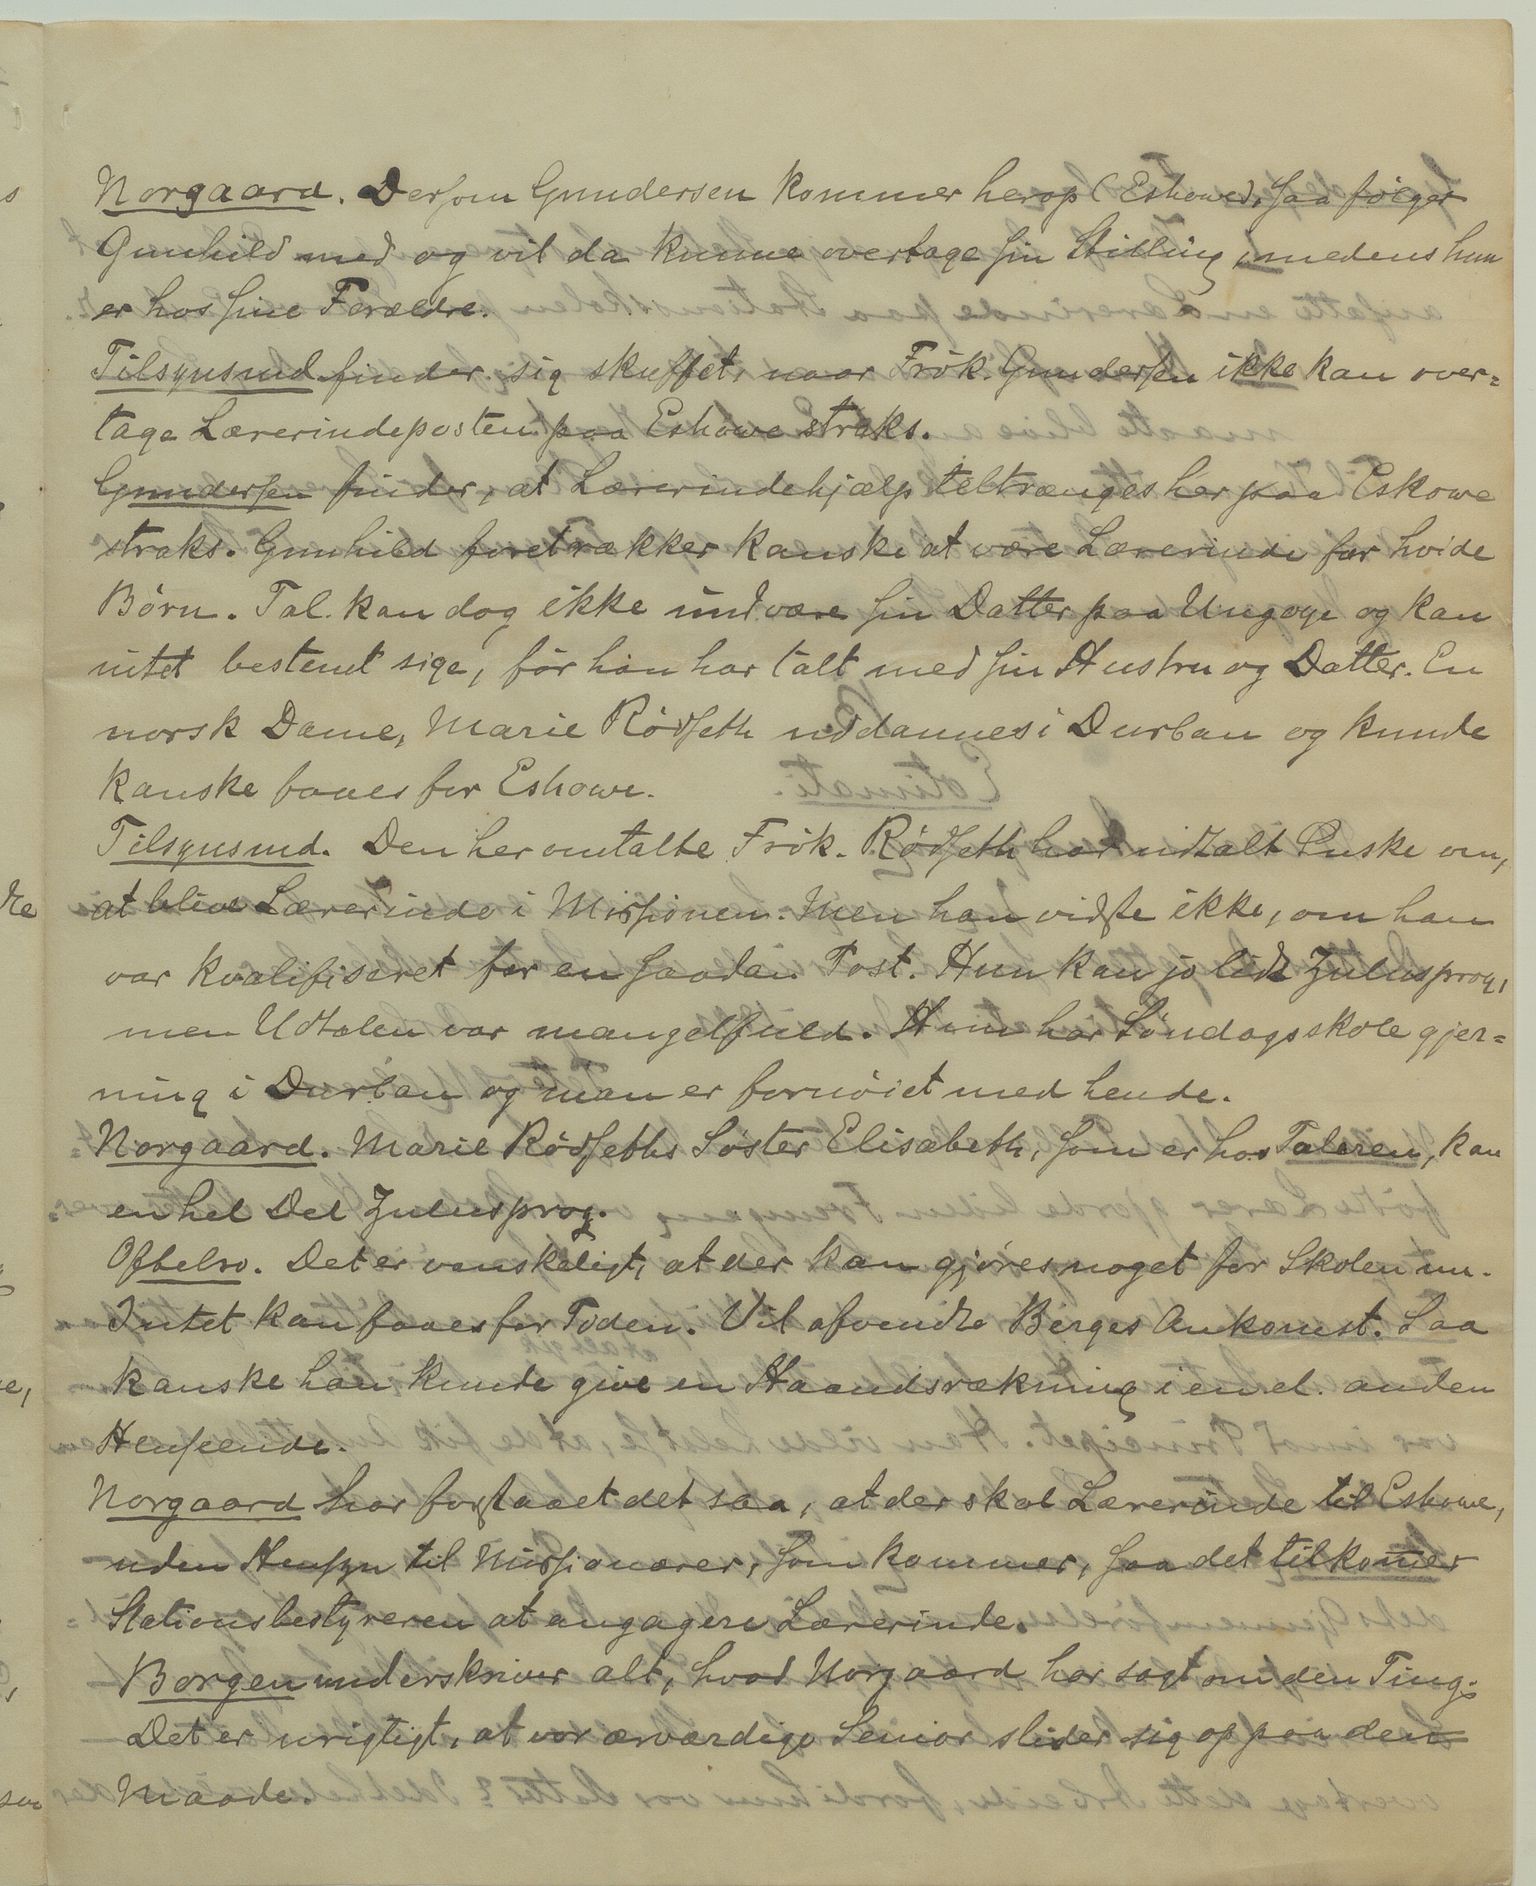 Norgaard. Dersom Gundersen kommer herop (Eshowe), saa følger
Gunhild med og vil da kunne overtage sin Stilling, medens hun
er hos sine Forældre.
Tilsynsmd. finder sig skuffet, naar Frøk. Gundersen ikke kan over=
tage Lærerindeposten paa Eshowe straks.
Gundersen finder, at Lærerindehjælp tiltrænges her paa Eskowe
straks. Gunhild foretrækker kanske at være Lærerinde for hvide
Børn. Tal. kan dog ikke undvære sin Datter paa Ungoye og kan
intet bestemt sige, før han har talt med sin Hustru og Datter. En
norsk Dame, Marie Rødseth uddannes i Durban og kunde
kanske faaes for Eshowe.
Tilsynsmd. Den her omtalte Frøk. Rødseth had udtalt Ønske om,
at blive Lærerinde i Missionen. Men han vidste ikke, om han
var kvalifiseret for en saadan Post. Hun kan jo lidt Zulusprog,
men Udtalen var mangelfuld. Hun har Søndagsskolegjer=
ning i Durban og man er fornøiet med hende.
Norgaard. Marie Rødseths Søster Elisabeth, som er hos Taleren, kan
en hel Del Zulusprog.
Oftebro. Det er vanskeligt, at der kan gjøres noget for Skolen nu.
Intet kan faaes for Tiden. Vil afvendte Berges Ankomst. Saa
kanske han kunde give en Haandsrækning i en el. anden
Henseende.
Norgaard har forstaaet det saa, at der skal Lærerinde til Eshowe,
uden Hensyn til Missionærer, som kommer, saa det tilkommer
Stationsbestyreren at angagere Lærerinde.
Borgen underskriver alt, hvad Norgaard har sagt om den Ting.
Det er urigtigt, at vor ærværdige Senior slider sig op paa den
Maade.